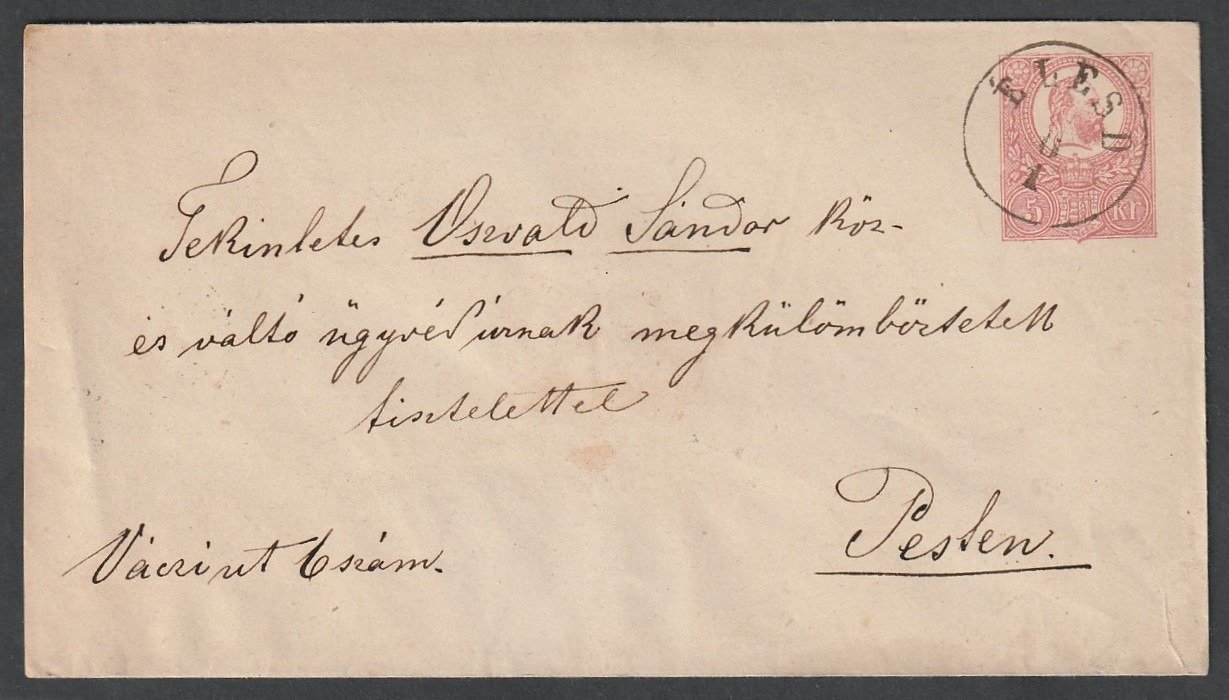 ÉLESD
6
1
5 Kr.
Tekintetes Oszvald Sándor köz-
és váltó ügyvéd úrnak megkülömböztetett
tisztelettel
Pesten.
Váczi ut 6 szám.